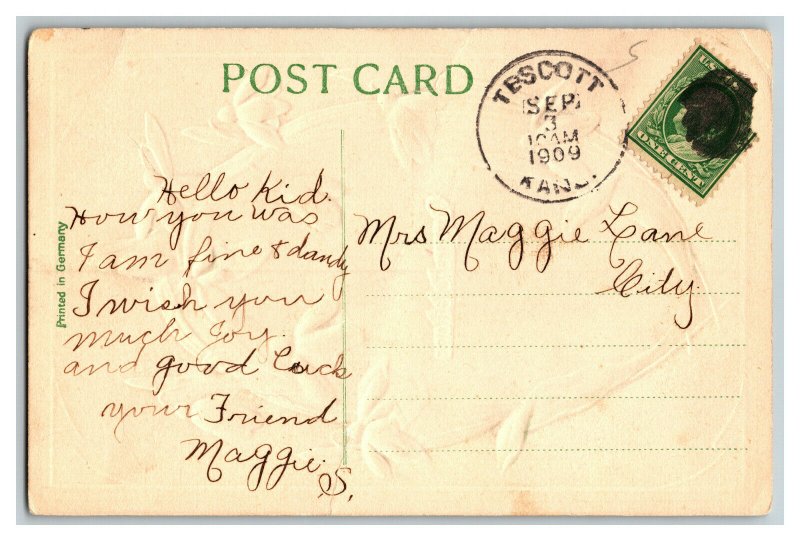 POST CARD
TESCOTT
SEP
3
10AM
1909
KANS.
ONE CENT
Printed in Germany
Hello Kid.
How you was
I am fine & dandy
I wish you
much Joy.
and good Luck
your Friend
Maggie.
S.
Mrs Maggie Lane
City.